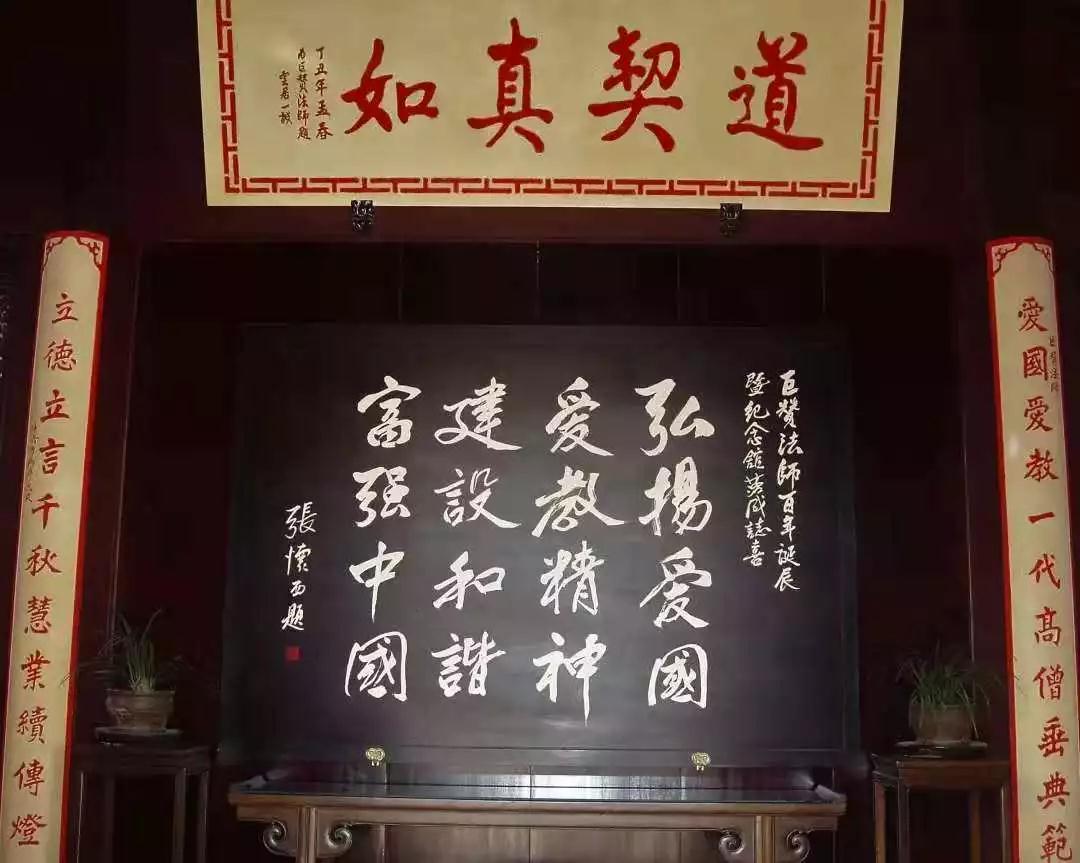 道契真如
丁丑年孟春
为巨赞法師題
雲居一诚
愛國愛教一代髙僧垂典範
巨贊法師
巨赞法师百年诞辰
暨纪念舘落成誌喜
弘揚爱國
爱教精神
建設和諧
富强中國
張怀西题
立德立言千秋慧業續傳燈